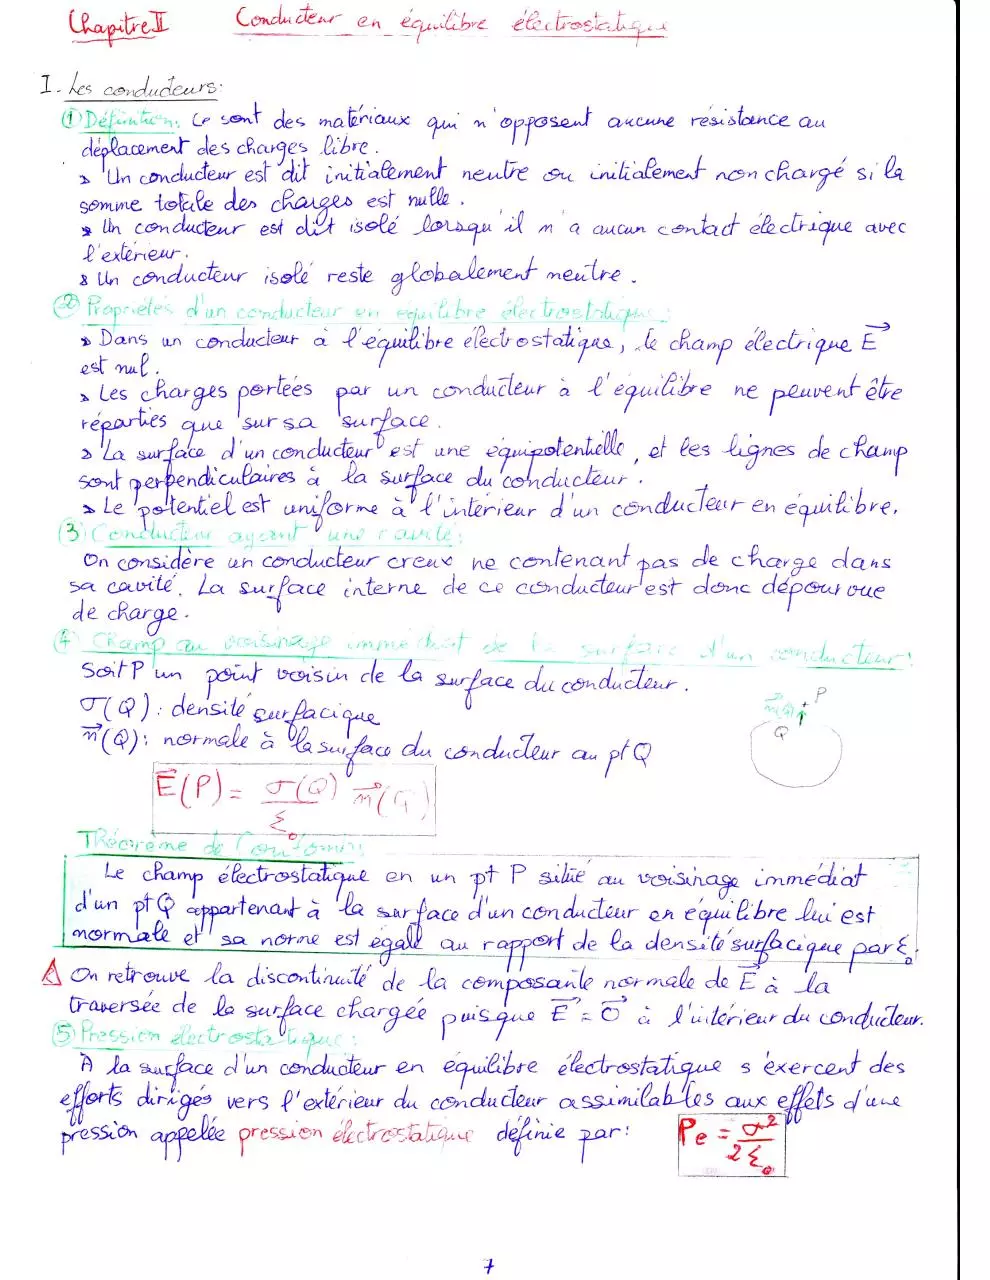 Chapitre II Conducteur en équilibre électrostatique
I- Les conducteurs:
① Définition: Ce sont des matériaux qui n'opposent aucune résistance au
déplacement des charges libre.
» Un conducteur est dit initialement neutre ou initialement non chargé si la
somme totale des charges est nulle.
» Un conducteur est dit isolé lorsqu'il n'a aucun contact électrique avec
l'extérieur.
» Un conducteur isolé reste globalement neutre.
② Propriétés d'un conducteur en équilibre électrostatique:
» Dans un conducteur à l'équilibre électrostatique, le champ électrique E⃗
est nul.
» Les charges portées par un conducteur à l'équilibre ne peuvent être
réparties que sur sa surface.
» La surface d'un conducteur est une équipotentielle, et les lignes de champ
sont perpendiculaires à la surface du conducteur.
» Le potentiel est uniforme à l'intérieur d'un conducteur en équilibre.
③ Conducteur ayant une cavité:
On considère un conducteur creux ne contenant pas de charge dans
sa cavité. La surface interne de ce conducteur est donc dépourvue
de charge.
④ Champ au voisinage immédiat de la surface d'un conducteur:
Soit P un point voisin de la surface du conducteur.
σ(Q): densité surfacique
n⃗(Q): normale à la surface du conducteur au pt Q
n⃗(Q) P
Q
E⃗(P) = σ(Q)/ε₀ n⃗(Q)
Théorème de
Le champ électrostatique en un pt P situé au voisinage immédiat
d'un pt Q appartenant à la surface d'un conducteur en équilibre lui est
normale et sa norme est égale au rapport de la densité surfacique par ε₀
⚠ On retrouve la discontinuité de la composante normale de E⃗ à la
traversée de la surface chargée puisque E⃗ = 0⃗ à l'intérieur du conducteur.
⑤ Pression électrostatique:
A la surface d'un conducteur en équilibre électrostatique s'exercent des
efforts dirigés vers l'extérieur du conducteur assimilables aux effets d'une
pression appelée pression électrostatique définie par: Pe = σ²/2ε₀
7